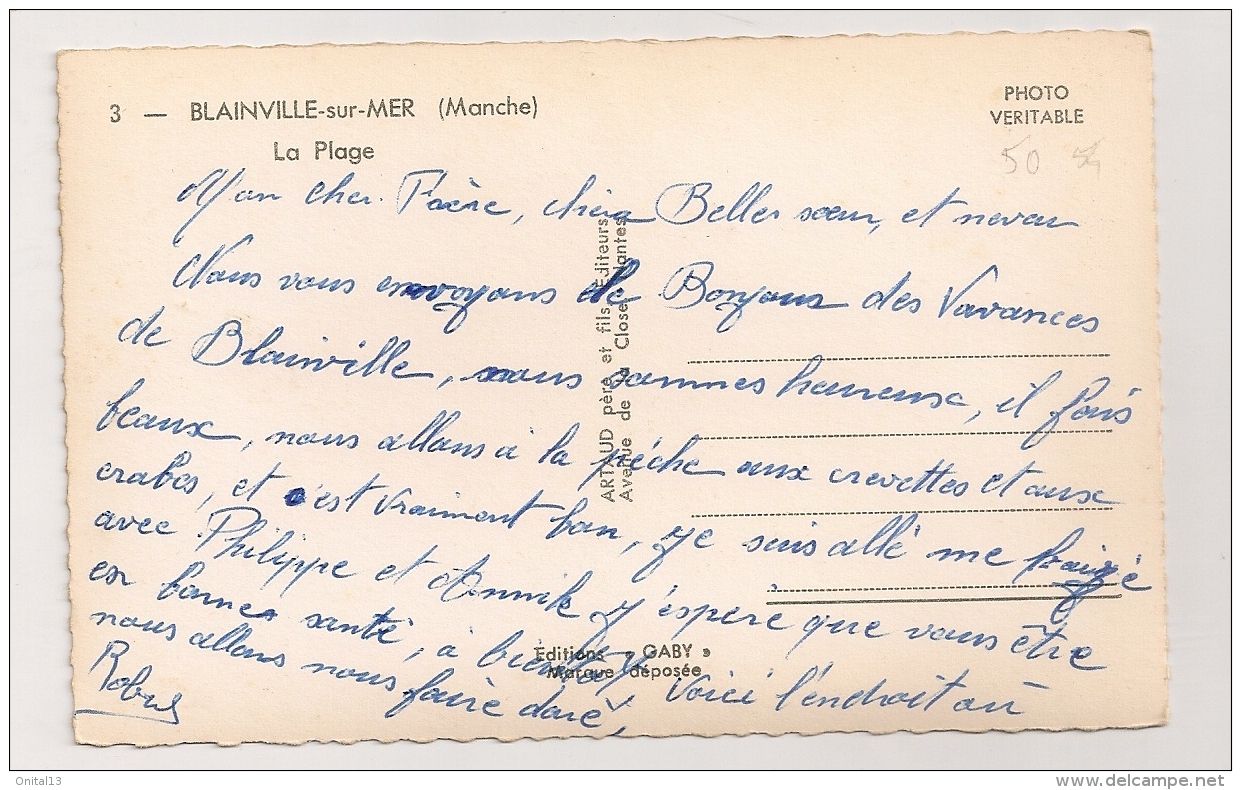 3 — BLAINVILLE-sur-MER (Manche)
La Plage
PHOTO
VERITABLE
50
Mon cher Frère, chère Belles sœur, et neveu
Nous vous envoyons de Bonjour des Vavances
de Blainville, nous sommes heureuse, il fais
beaux, nous allons à la pêche aux crevettes et aux
crabes, et c'est vraiment bon, je suis allé me baigé
avec Philippe et Annik j'éspère que vous être
en bonnes santé, à bientôt Voici l'endroit où
nous allons nous faire doré,
ARTAUD père et fils, Éditeurs
Avenue de la Close, Nantes
Éditions « GABY »
Marque déposée
Onital13
www.delcampe.net